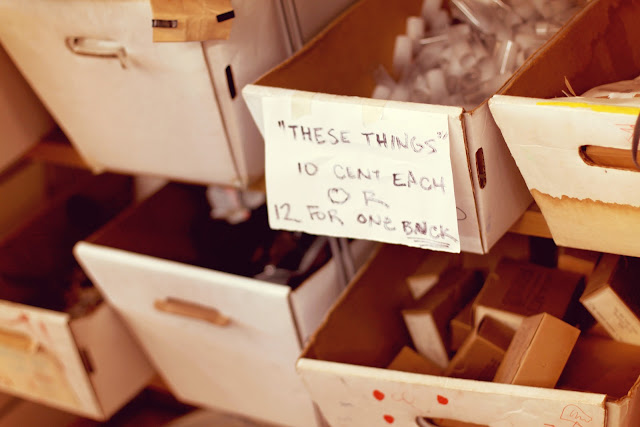 "THESE THINGS"
10 CENT EACH
OR
12 FOR ONE BUCK